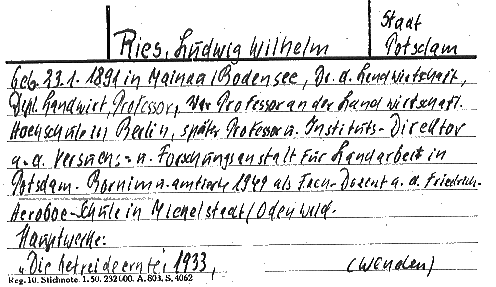 Ries, Ludwig Wilhelm
Staat
Potsdam
geb. 23.1. 1891 in Mainau/Bodensee, Dr. d. Landwirtschaft,
Dipl. Landwirt, Professor, war Professor an der Landwirtschaftl.
Hochschule in Berlin, später Professor u. Instituts-Direktor
a. d. Versuchs- u. Forschungsanstalt für Landarbeit in
Potsdam-Bornim u. amtierte 1949 als Fach-Dozent a. d. Friedrich-
Aeroboe-Schule in Michelstadt/Odenwald.
Hauptwerke:
"Die Getreideernte, 1933,
(Wenden)
Reg. 10. Stichnote. 1. 50. 232 000. A. 803. S. 4062